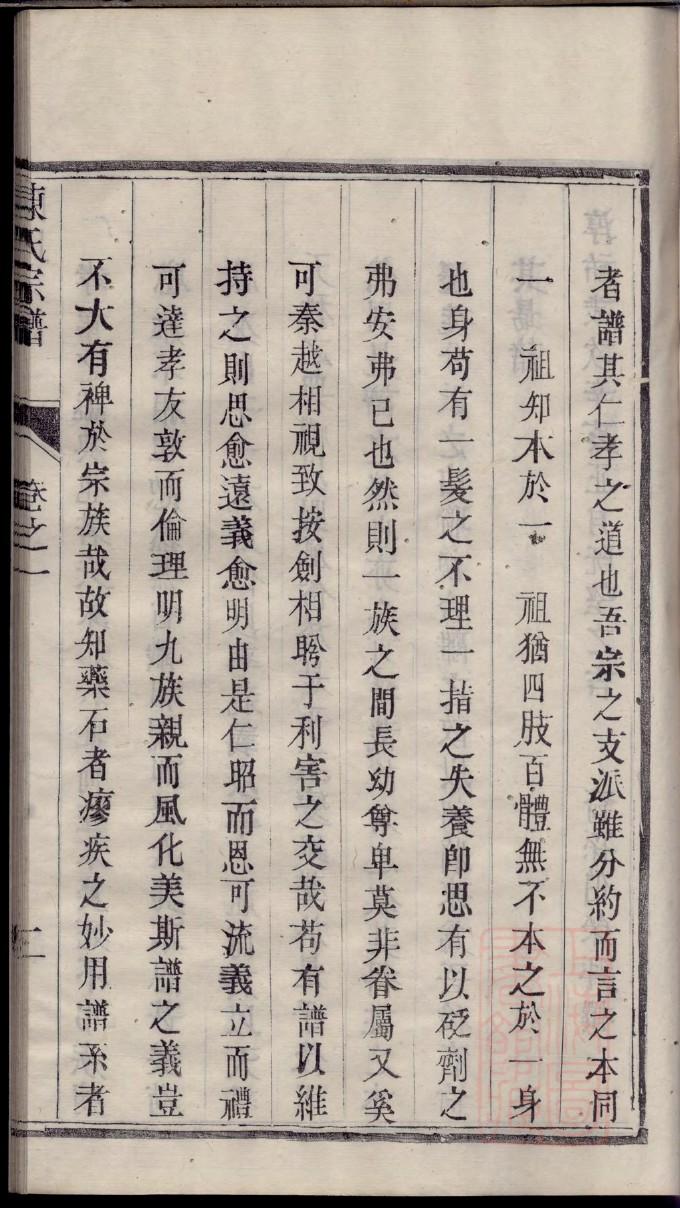 者譜其仁孝之道也吾宗之支派雖分約而言之本同
一　祖知本於一　祖猶四肢百體無不本之於一身
也身苟有一髮之不理一指之失養卽思有以砭劑之
弗安弗已也然則一族之間長幼尊卑莫非眷屬又奚
可秦越相視致按劍相盻于利害之交哉苟有譜以維
持之則思愈遠義愈明由是仁昭而恩可流義立而禮
可達孝友敦而倫理明九族親而風化美斯譜之義豈
不大有裨於宗族哉故知藥石者瘳疾之妙用譜系者
陳氏宗譜　卷之一　二